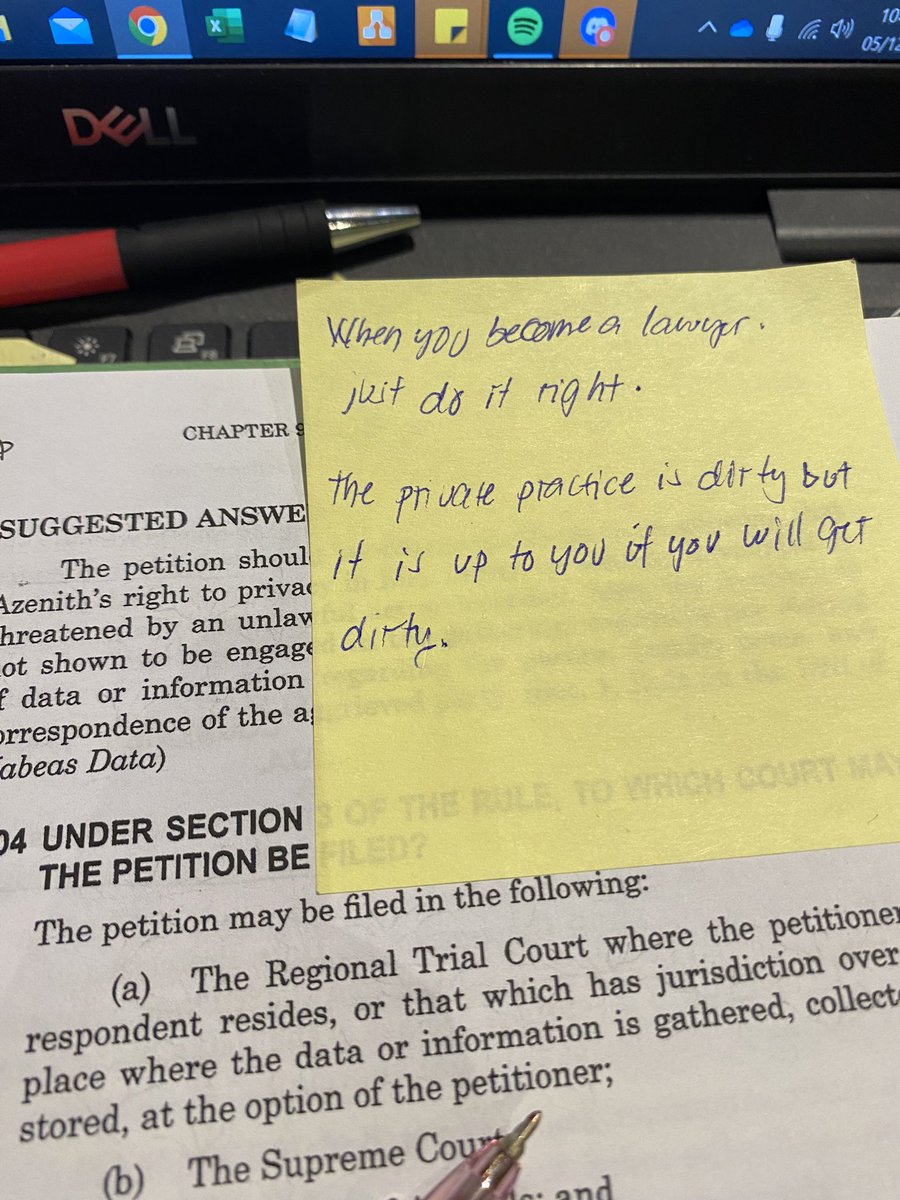 10
05/12
DELL
F7
F8
When you become a lawyer.
just do it right.
The private practice is dirty but
it is up to you if you will get
dirty.
CHAPTER 9
SUGGESTED ANSWE
The petition shoul
Azenith's right to privac
hreatened by an unlaw
ot shown to be engage
f data or information
orrespondence of the a
abeas Data)
04 UNDER SECTION S OF THE RULE, TO WHICH COURT MAY
THE PETITION BE FILED?
The petition may be filed in the following:
(a) The Regional Trial Court where the petitioner
respondent resides, or that which has jurisdiction over
place where the data or information is gathered, collect
stored, at the option of the petitioner;
(b) The Supreme Court
and